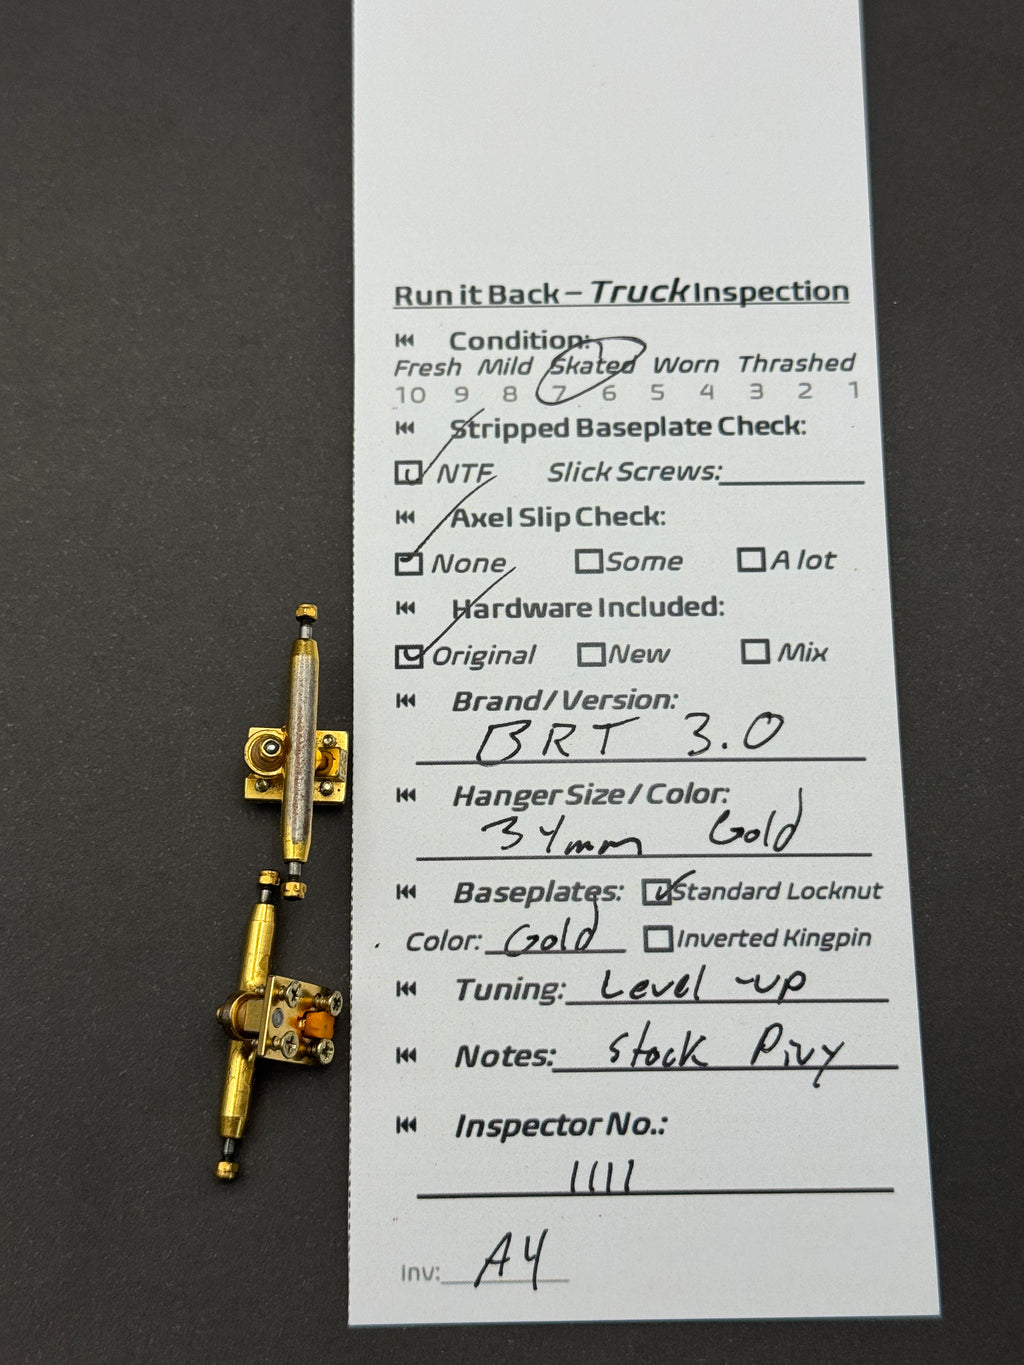 Run it Back – Truck Inspection
Condition:
Fresh Mild Skated Worn Thrashed
10 9 8 7 6 5 4 3 2 1
Stripped Baseplate Check:
NTF Slick Screws:
Axel Slip Check:
None Some A lot
Hardware Included:
Original New Mix
Brand/Version:
BRT 3.0
Hanger Size/Color:
34mm Gold
Baseplates: Standard Locknut
Color: Gold Inverted Kingpin
Tuning: Level-up
Notes: Stock Pivy
Inspector No.:
1111
Inv: A4